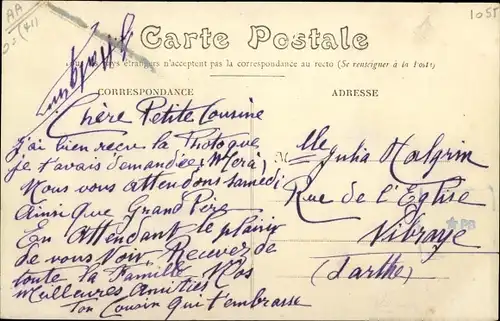 1055
Carte Postale
pays étrangers n'acceptent pas la correspondance au recto (Se renseigner à la Poste)
CORRESPONDANCE
ADRESSE
Chère Petite Cousine
j'ai bien recu la Photo que
je t'avais demandée (Merci)
Nous vous attendons samedi
ainsi que Grand Père
En attendant le plaisir
de vous Voir, Recevez de
toute la Famille Nos
Meilleures Amitiés
ton Cousin qui t'embrasse
Mlle Julia Malgrin
Rue de l'Eglise
Vibraye
(Sarthe)